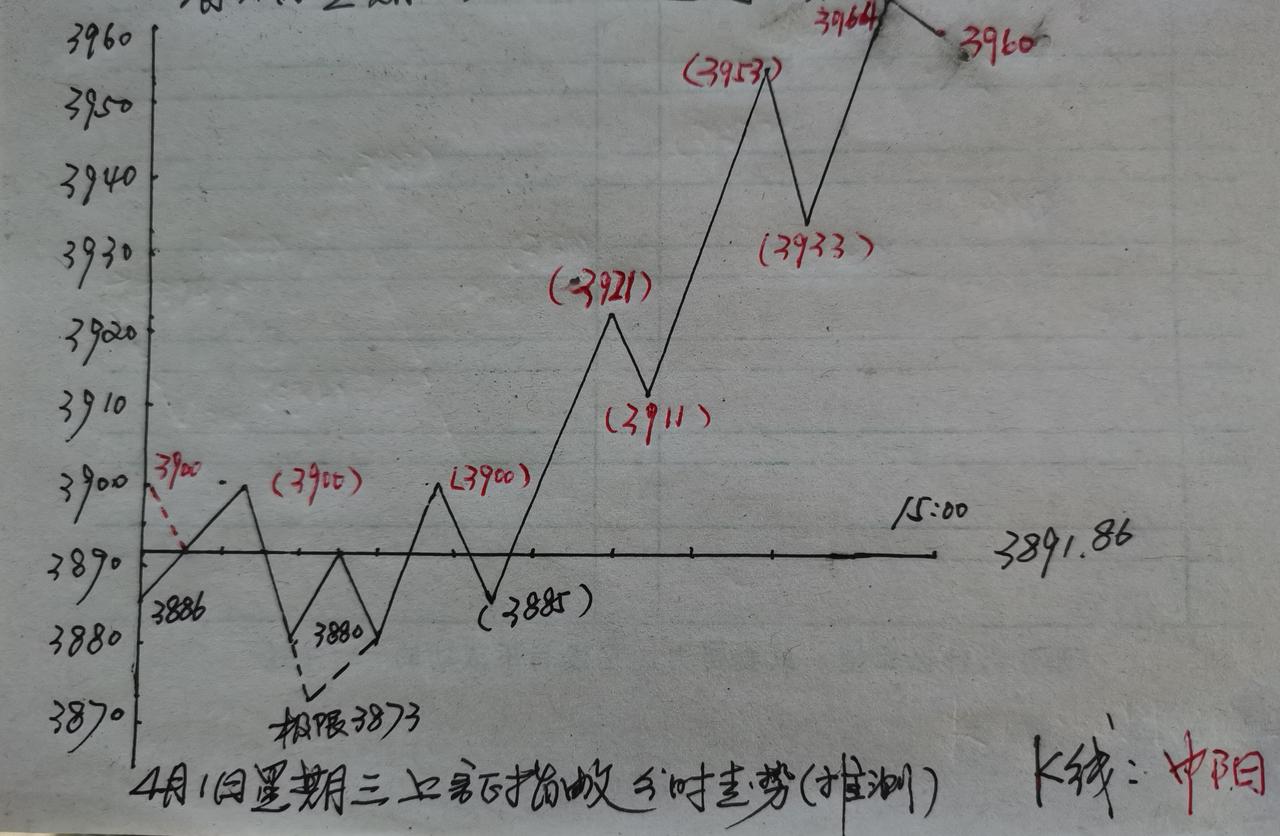 3964
3960
3960
(3953)
3950
3940
3930
(3933)
(3921)
3920
3910
(3911)
3900
3900
(3900)
(3900)
15:00
3890
3891.86
3886
(3885)
3880
3880
3870
极限3873
4月1日星期三上证指数分时走势(推测)
K线:中阳